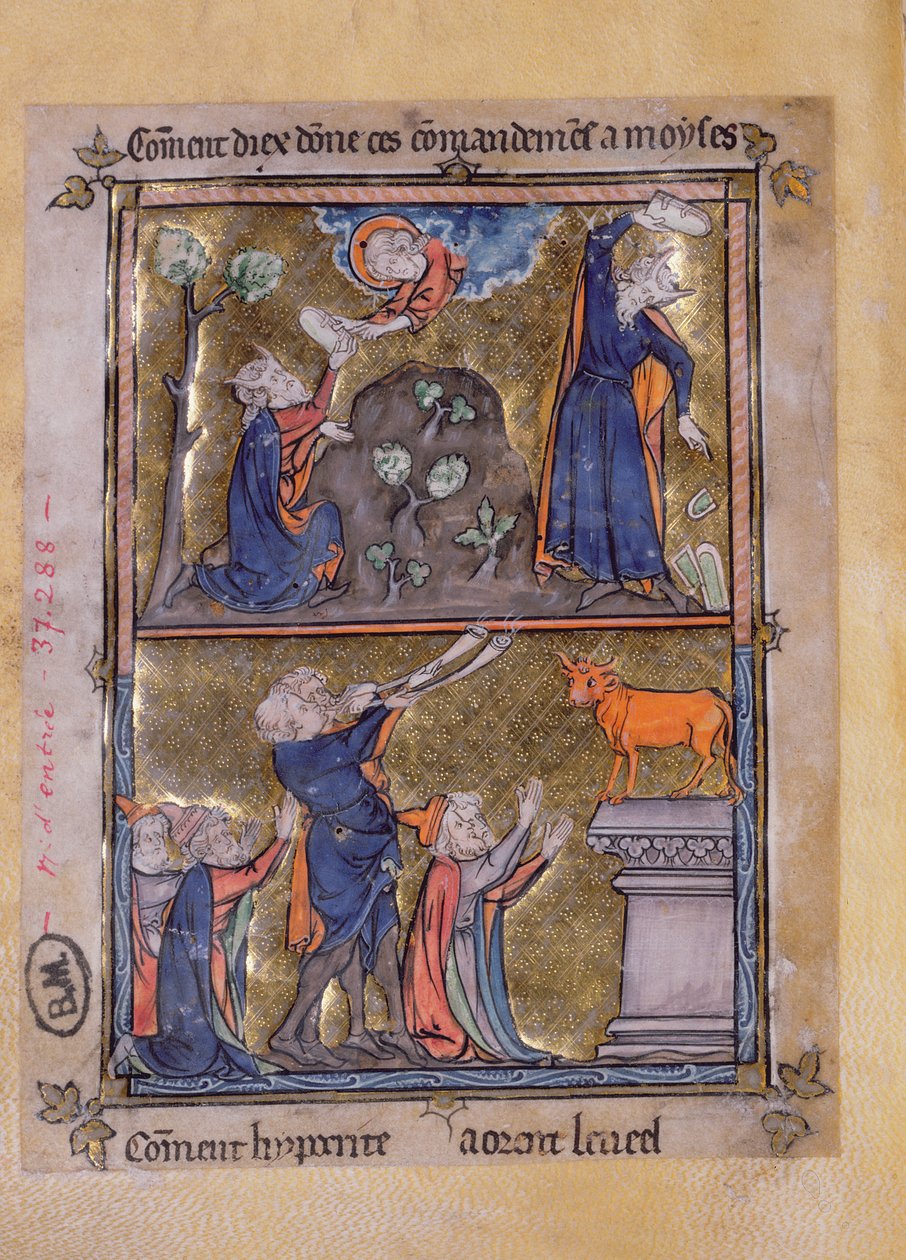 Cōment diex dōne ces cōmandemēs a moyses
— nº d'entrée - 37.288 —
B.M.
Cōment hypocrite aorent le veel